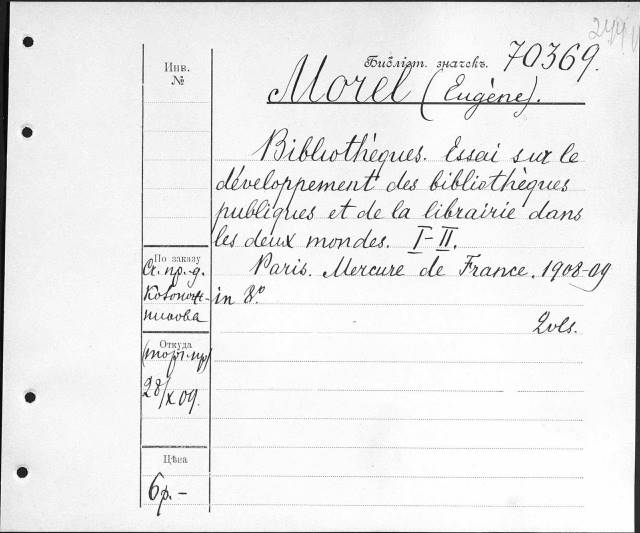 244
Инв.
№
Библіот. значекъ. 70369.
Morel (Eugène).
Bibliothèques. Essai sur le
développement des bibliothèques
publiques et de la librairie dans
les deux mondes. I-II.
Paris. Mercure de France. 1908-09
in 8°
2 vls.
По заказу
Ст. пр. д.
Откуда
(торг. пр)
28/X 09.
Цѣна
6 р. –